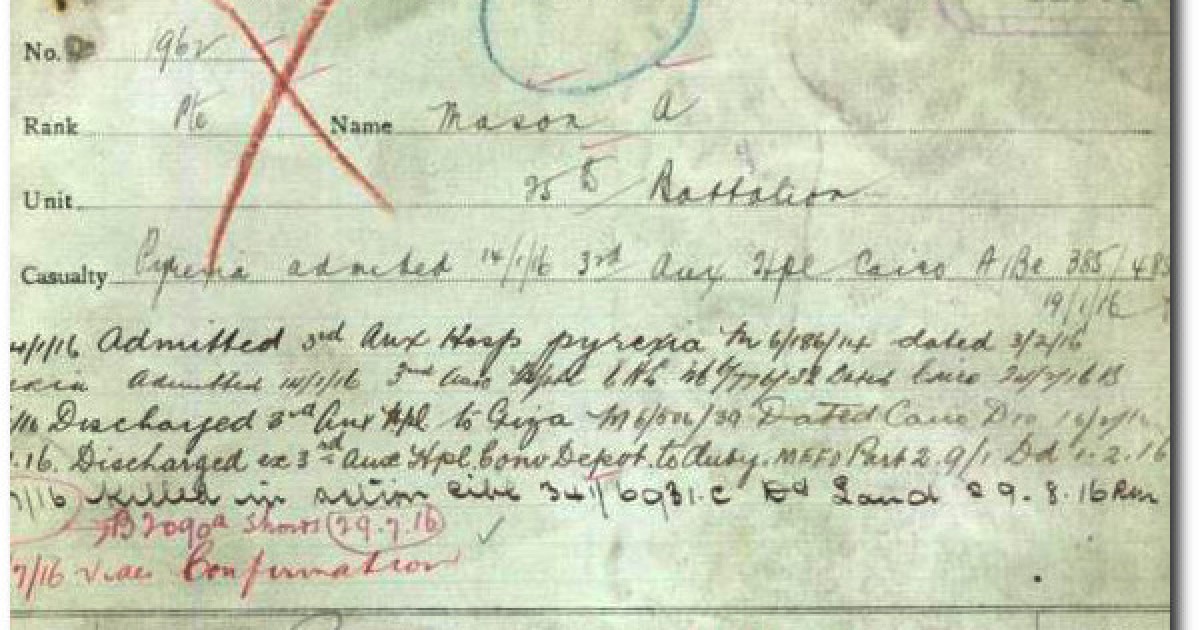 No. 1962
Rank Pte Name Mason A
Unit 25th Battalion
Casualty Pyrexia admitted 14/1/16 3rd Aux Hpl Cairo A/Be 385/483
19/1/16
4/1/16 Admitted 3rd Aux Hosp pyrexia M 6/186/14 dated 3/2/16
exia Admitted 14/1/16 3rd Aux Hpl Dated Cairo
/16 Discharged 3rd Aux Hpl to Giza M6/506/39 Dated Cairo
.16. Discharged ex 3rd Aux Hpl. Conv Depot. to duty. MEFO Part 2. 9/1 Dd 1.2.16
7/16 Killed in action 341/6931.C Ld Land 29.8.16
B2090a Shows (29.7.16)
7/16 Confirmation